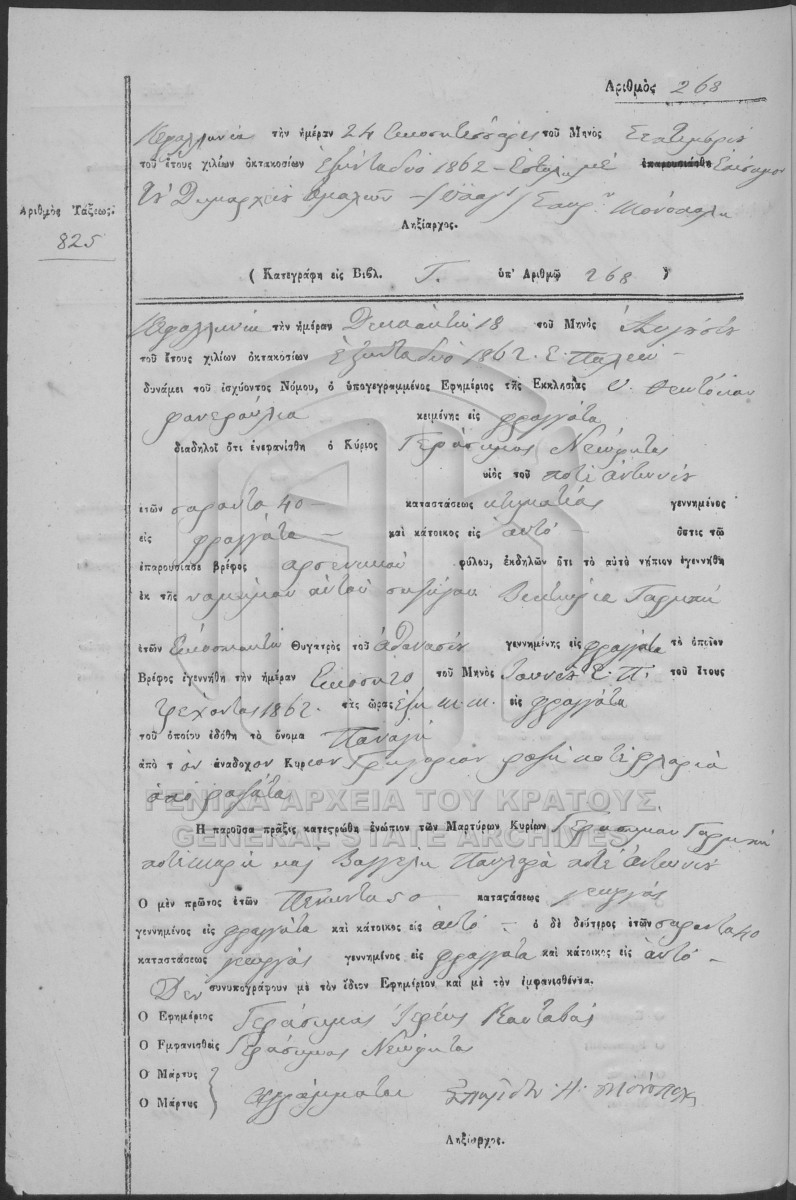 Ἀριθμὸς 268
Κεφαλληνία τὴν ἡμέραν 24 εἰκοσιτέσσαρες τοῦ Μηνὸς Σεπτεμβρίου
τοῦ ἔτους χιλίων ὀκτακοσίων ἑξήντα δύο 1862 – ἐπαρουσιάσθη ἐπίσημον
Δημαρχείου
Ἀριθμὸς Τάξεως.
825
Ληξίαρχος.
( Κατεγράφη εἰς Βιβλ. Γ. ὑπ' Ἀριθμῷ 268 )
Κεφαλληνία τὴν ἡμέραν Δεκαοκτώ 18 τοῦ Μηνὸς Αὐγούστου
τοῦ ἔτους χιλίων ὀκτακοσίων ἑξήντα δύο 1862. Ε. Παλαιόν –
δυνάμει τοῦ ἰσχύοντος Νόμου, ὁ ὑπογεγραμμένος Ἐφημέριος τῆς Ἐκκλησίας Υ. Θεοτόκου
φανερούλια κειμένης εἰς φραγγάτα
διαδηλοῖ ὅτι ἐνεφανίσθη ὁ Κύριος Γεράσιμος Νεόφυτος
υἱὸς τοῦ ποτὲ Ἀντωνίου
ἐτῶν σαράντα 40 – καταστάσεως κτηματίας γεννημένος
εἰς φραγγάτα – καὶ κάτοικος εἰς αὐτό – ὅστις τῷ
ἐπαρουσίασε βρέφος ἀρσενικοῦ φύλου, ἐκδηλῶν ὅτι τὸ αὐτὸ νήπιον ἐγεννήθη
ἐκ τῆς νομίμου αὐτοῦ συζύγου Βικτωρία
ἐτῶν Εἰκοσιοκτώ Θυγατρὸς τοῦ Ἀθανασίου γεννημένης εἰς φραγγάτα τὸ ὁποῖον
Βρέφος ἐγεννήθη τὴν ἡμέραν Εἴκοσι 20 τοῦ Μηνὸς Ἰουνίου Ε. Π. τοῦ ἔτους
τρέχοντος 1862. τὰς ὥρας ἕξη μ.μ. εἰς φραγγάτα
τοῦ ὁποίου ἐδόθη τὸ ὄνομα Παναγή
ἀπὸ τὸν ἀνάδοχον Κύριον Γρηγόριον
ἀπὸ
ΓΕΝΙΚΑ ΑΡΧΕΙΑ ΤΟΥ ΚΡΑΤΟΥΣ
GENERAL STATE ARCHIVES
Ἡ παροῦσα πρᾶξις κατεστρώθη ἐνώπιον τῶν Μαρτύρων Κυρίων Γεράσιμον
καὶ Βαγγέλη ποτὲ Ἀντωνίου
Ὁ μὲν πρῶτος ἐτῶν Πενήντα 50 – καταστάσεως γεωργός
γεννημένος εἰς φραγγάτα καὶ κάτοικος εἰς αὐτό – ὁ δὲ δεύτερος ἐτῶν σαράντα 40
καταστάσεως γεωργός γεννημένος εἰς φραγγάτα καὶ κάτοικος εἰς αὐτό –
Δὲν συνυπογράφουν μὲ τὸν ἴδιον Ἐφημέριον καὶ μὲ τὸν ἐμφανισθέντα.
Ὁ Ἐφημέριος Γεράσιμος Ἱερεὺς
Ὁ Ἐμφανισθεὶς Γεράσιμος Νεόφυτος
Ὁ Μάρτυς
Ὁ Μάρτυς ἀγράμματοι
Ληξίαρχος.